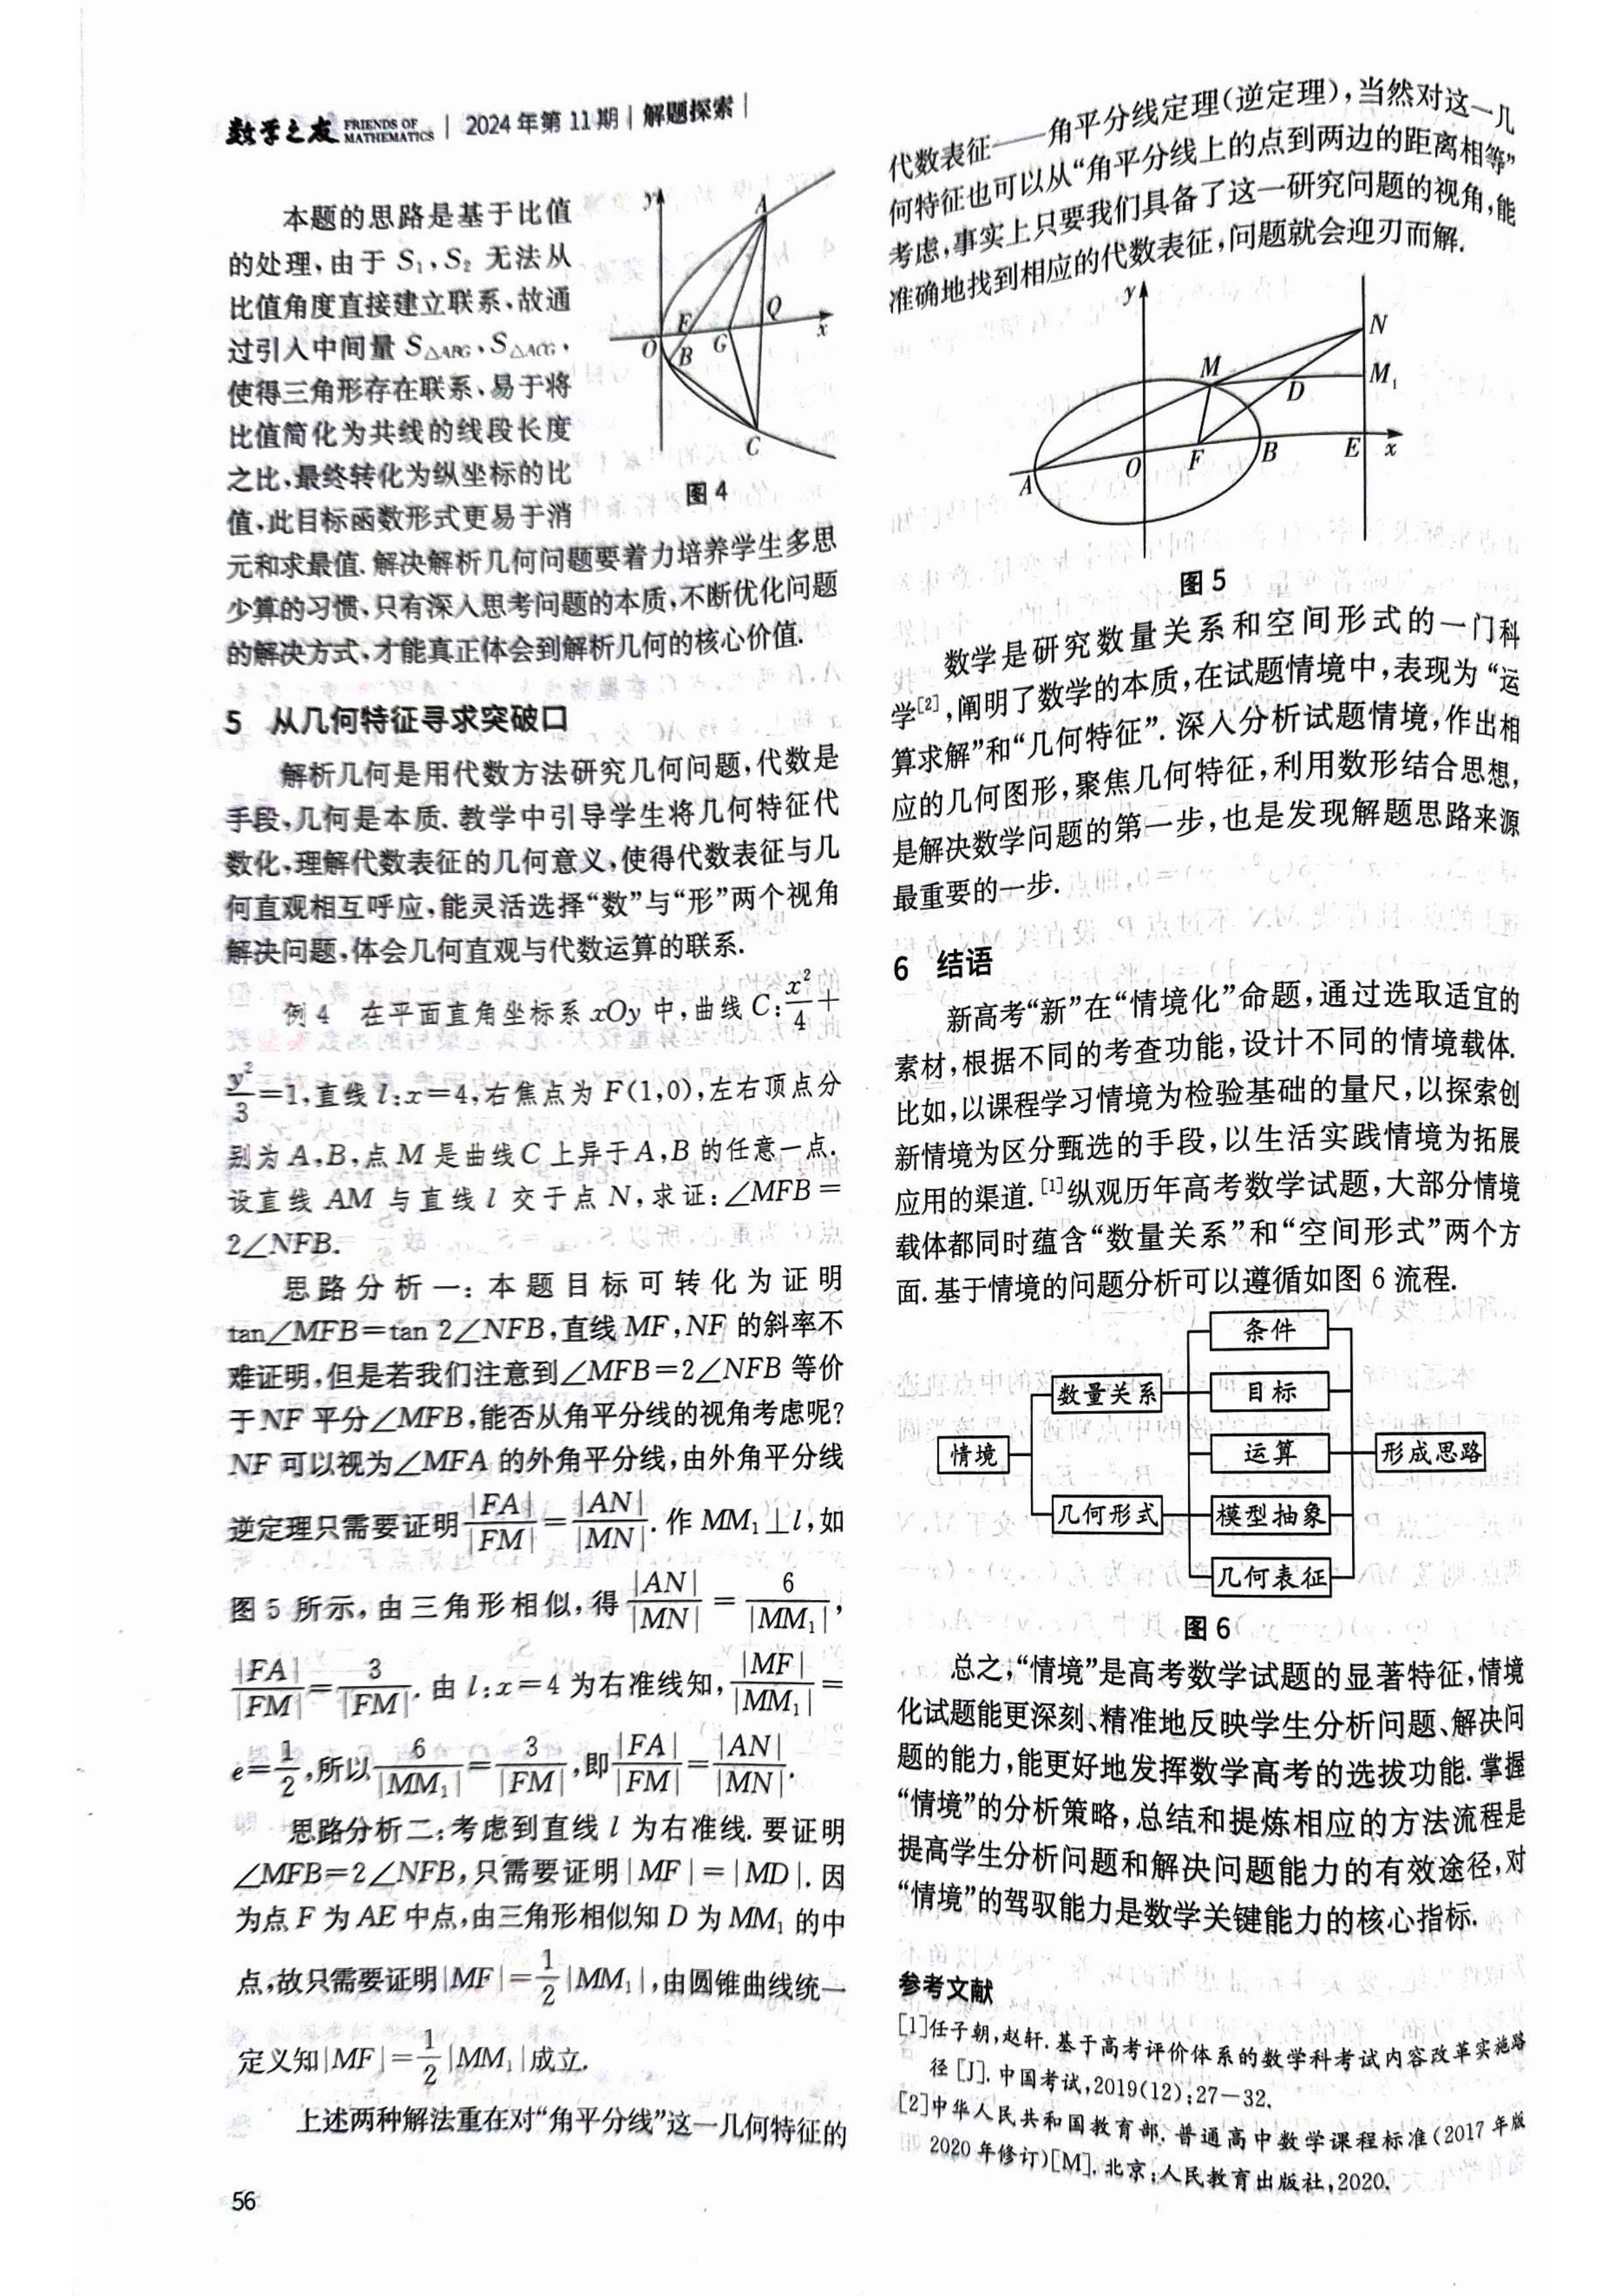 数学之友 FRIENDS OF MATHEMATICS | 2024年第11期 | 解题探索 |
本题的思路是基于比值
的处理,由于 S₁,S₂ 无法从
比值角度直接建立联系,故通
过引入中间量 S△ABG,S△ACG,
使得三角形存在联系,易于将
比值简化为共线的线段长度
之比,最终转化为纵坐标的比
值,此目标函数形式更易于消
元和求最值. 解决解析几何问题要着力培养学生多思
少算的习惯,只有深入思考问题的本质,不断优化问题
的解决方式,才能真正体会到解析几何的核心价值.
y
A
F
Q
x
O
B
G
C
图 4
5 从几何特征寻求突破口
解析几何是用代数方法研究几何问题,代数是
手段,几何是本质. 教学中引导学生将几何特征代
数化,理解代数表征的几何意义,使得代数表征与几
何直观相互呼应,能灵活选择“数”与“形”两个视角
解决问题,体会几何直观与代数运算的联系.
例 4 在平面直角坐标系 xOy 中,曲线 C: x²/4 +
y²/3 =1,直线 l:x=4,右焦点为 F(1,0),左右顶点分
别为 A,B,点 M 是曲线 C 上异于 A,B 的任意一点.
设直线 AM 与直线 l 交于点 N,求证:∠MFB=
2∠NFB.
思路分析一:本题目标可转化为证明
tan∠MFB=tan 2∠NFB,直线 MF,NF 的斜率不
难证明,但是若我们注意到∠MFB=2∠NFB 等价
于 NF 平分∠MFB,能否从角平分线的视角考虑呢?
NF 可以视为∠MFA 的外角平分线,由外角平分线
逆定理只需要证明 |FA|/|FM| = |AN|/|MN|. 作 MM₁⊥l,如
图 5 所示,由三角形相似,得 |AN|/|MN| = 6/|MM₁|,
|FA|/|FM| = 3/|FM|. 由 l:x=4 为右准线知, |MF|/|MM₁| =
e=1/2,所以 6/|MM₁| = 3/|FM|,即 |FA|/|FM| = |AN|/|MN|.
思路分析二:考虑到直线 l 为右准线. 要证明
∠MFB=2∠NFB,只需要证明|MF|=|MD|. 因
为点 F 为 AE 中点,由三角形相似知 D 为 MM₁ 的中
点,故只需要证明|MF|=1/2|MM₁|,由圆锥曲线统一
定义知|MF|=1/2|MM₁|成立.
上述两种解法重在对“角平分线”这一几何特征的
56
代数表征——角平分线定理(逆定理),当然对这一几
何特征也可以从“角平分线上的点到两边的距离相等”
考虑,事实上只要我们具备了这一研究问题的视角,能
准确地找到相应的代数表征,问题就会迎刃而解.
y
N
M
M₁
D
A
O
F
B
E
x
图 5
数学是研究数量关系和空间形式的一门科
学[2],阐明了数学的本质,在试题情境中,表现为“运
算求解”和“几何特征”. 深入分析试题情境,作出相
应的几何图形,聚焦几何特征,利用数形结合思想,
是解决数学问题的第一步,也是发现解题思路来源
最重要的一步.
6 结语
新高考“新”在“情境化”命题,通过选取适宜的
素材,根据不同的考查功能,设计不同的情境载体.
比如,以课程学习情境为检验基础的量尺,以探索创
新情境为区分甄选的手段,以生活实践情境为拓展
应用的渠道.[1]纵观历年高考数学试题,大部分情境
载体都同时蕴含“数量关系”和“空间形式”两个方
面. 基于情境的问题分析可以遵循如图 6 流程.
条件
数量关系
目标
情境
运算
形成思路
几何形式
模型抽象
几何表征
图 6
总之,“情境”是高考数学试题的显著特征,情境
化试题能更深刻、精准地反映学生分析问题、解决问
题的能力,能更好地发挥数学高考的选拔功能. 掌握
“情境”的分析策略,总结和提炼相应的方法流程是
提高学生分析问题和解决问题能力的有效途径,对
“情境”的驾驭能力是数学关键能力的核心指标.
参考文献
[1]任子朝,赵轩. 基于高考评价体系的数学科考试内容改革实施路
径[J]. 中国考试,2019(12):27—32.
[2]中华人民共和国教育部. 普通高中数学课程标准(2017 年版
2020 年修订)[M]. 北京:人民教育出版社,2020.